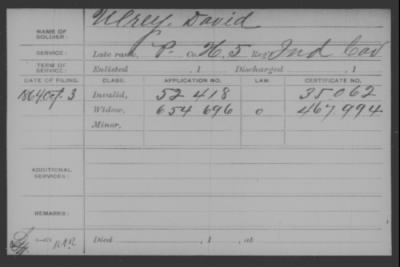 NAME OF SOLDIER: Ulrey, David
SERVICE: Late rank, P. Co. H, 5 Reg't Ind Cav
TERM OF SERVICE: Enlisted , 1 Discharged , 1
DATE OF FILING. CLASS. APPLICATION NO. LAW. CERTIFICATE NO.
1864 Oct. 3 Invalid, 52 418 35062
Widow, 654 696 0 467,994
Minor,
ADDITIONAL SERVICES:
REMARKS:
Died , 1 , at